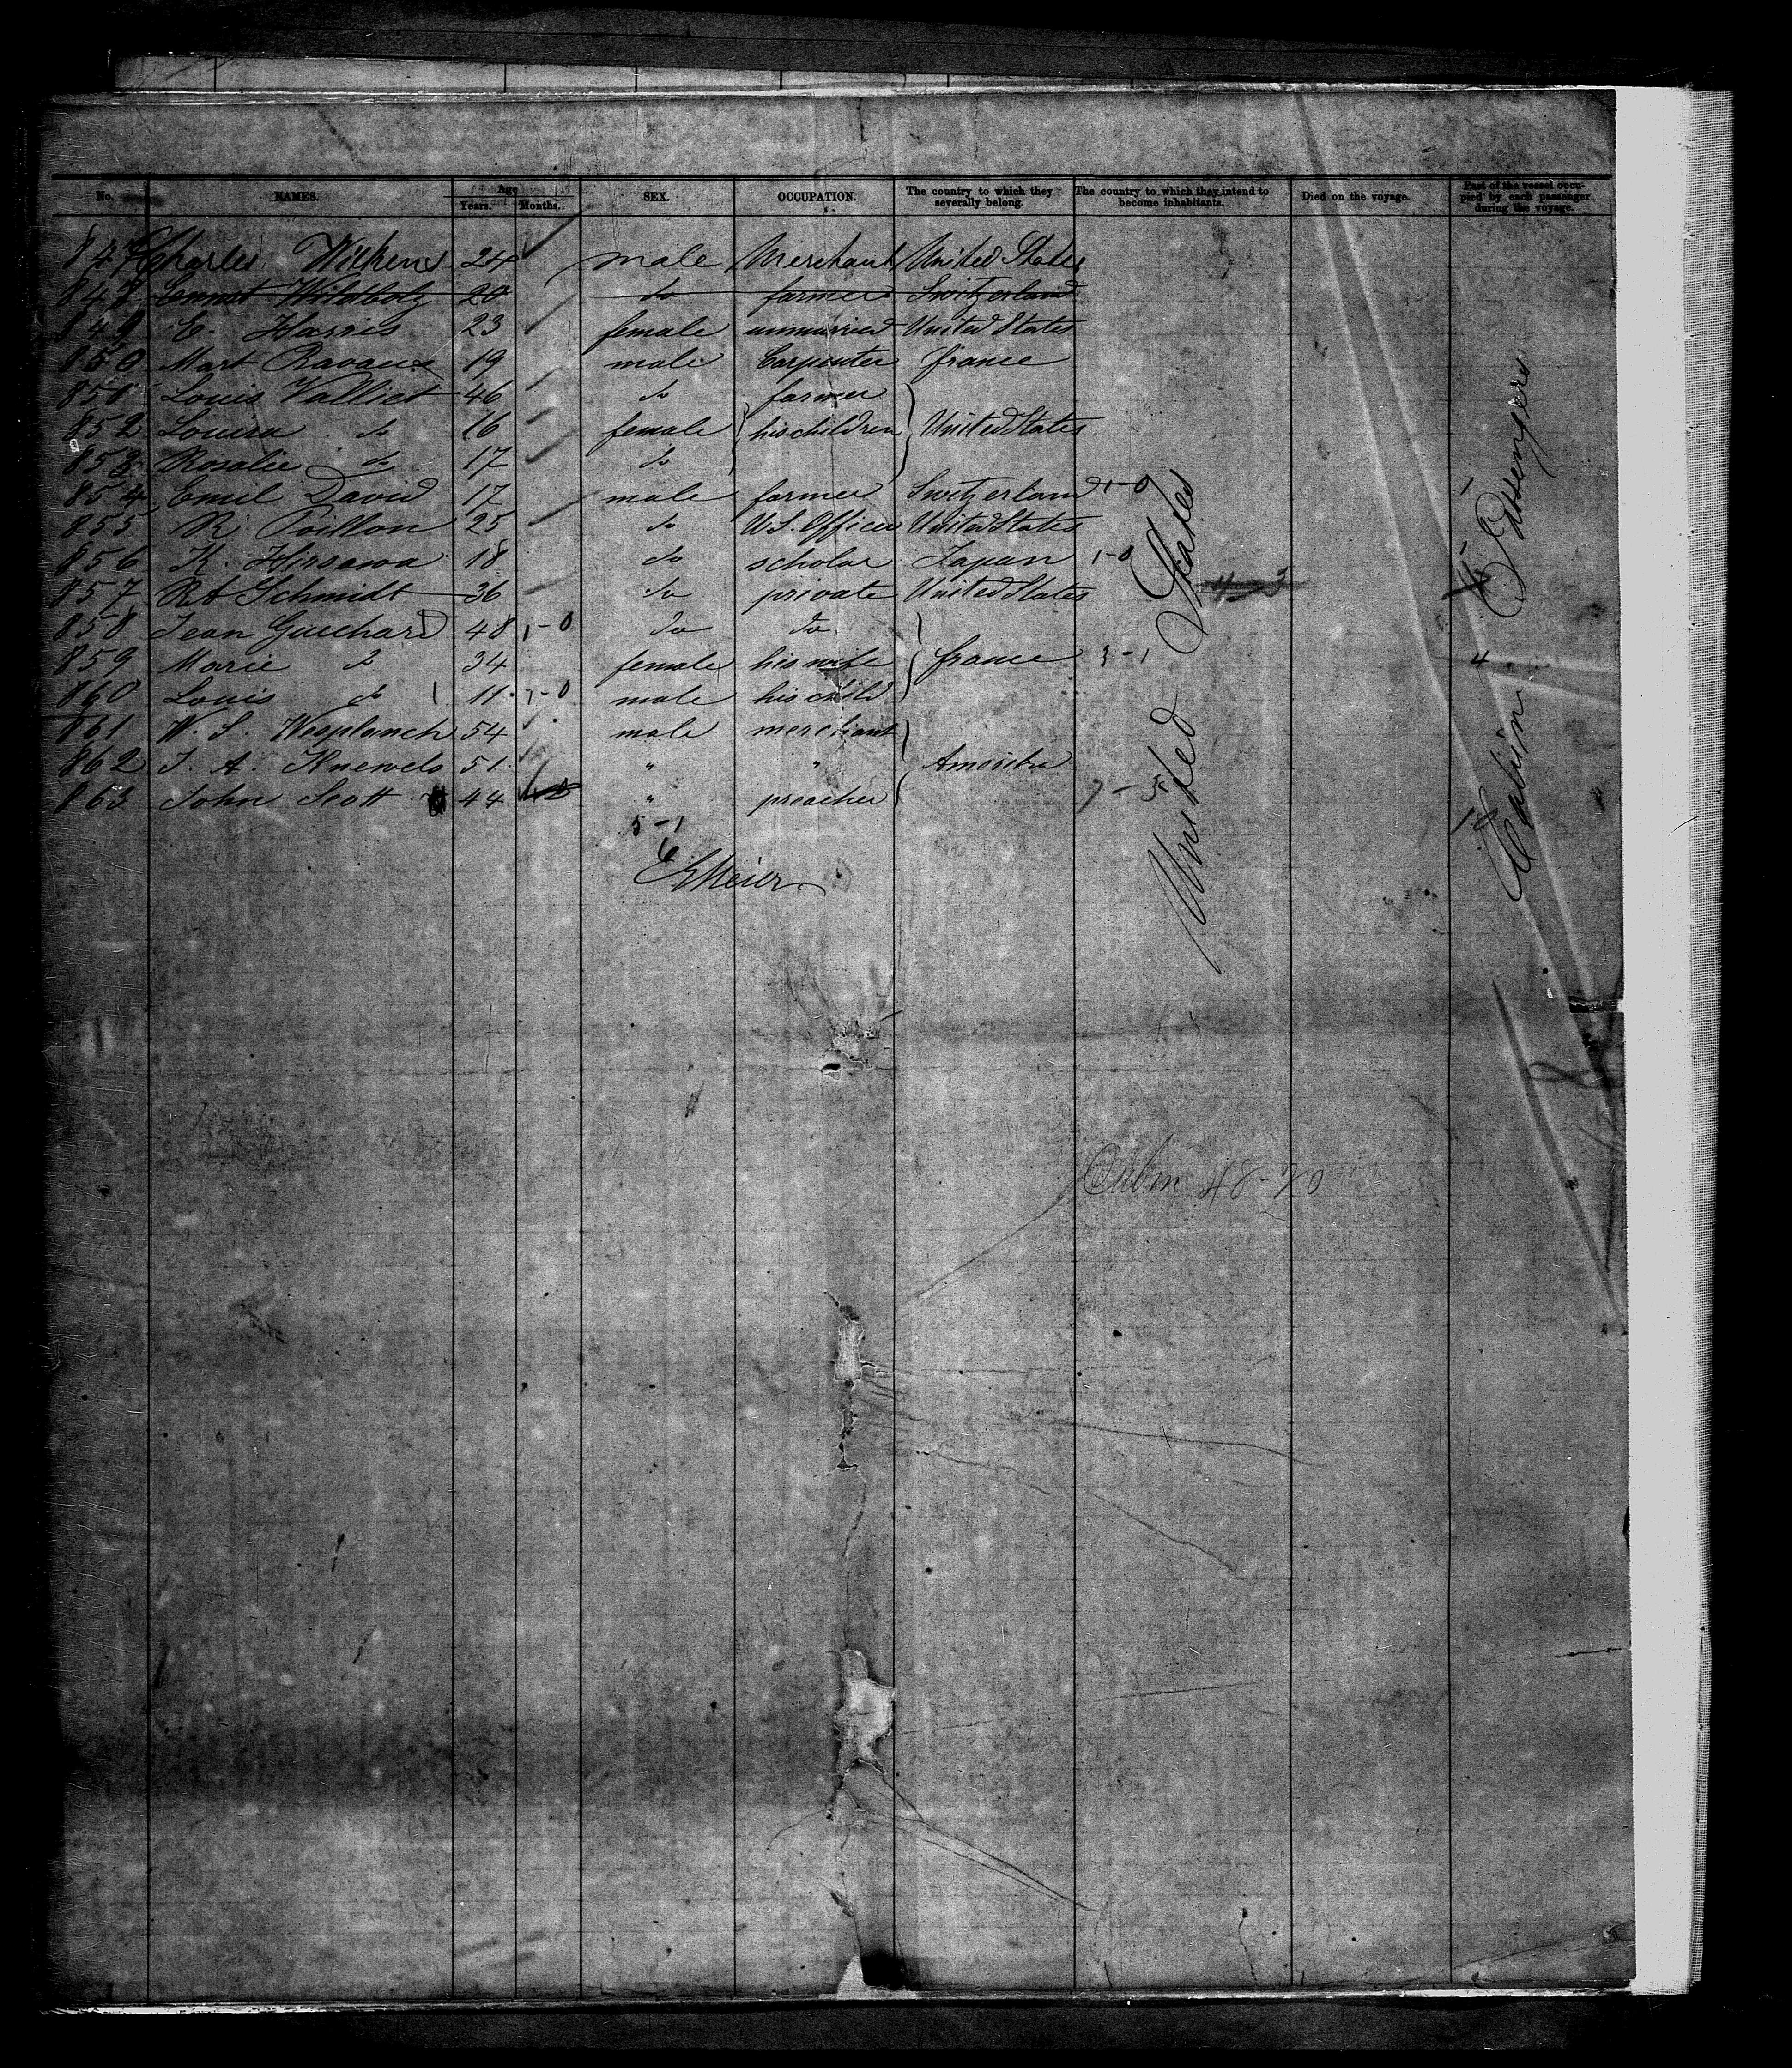 No. NAMES. Age Years. Months. SEX. OCCUPATION. The country to which they severally belong. The country to which they intend to become inhabitants. Died on the voyage. Part of the vessel occupied by each passenger during the voyage.
847 Charles Wilkens 24 male Merchant United States
848 Ernst Wildbolz 20 do farmer Switzerland
849 E. Harris 23 female unmarried United States
850 Mart Ravaux 19 male Carpenter france
851 Louis Valliet 46 do farmer
852 Louisa do 16 female his children United States
853 Rosalie do 17 do
854 Emil David 17 male farmer Switzerland 1-0 1
855 R. Poillon 25 do U.S. Officer United States
856 K. Hirsawa 18 do scholar Japan 1-0
857 Rt Schmidt 36 do private United States
858 Jean Guichard 48 1-0 do do
859 Marie do 34 female his wife france 3-1 4
860 Louis do 11 1-0 male his child
861 W. S. Wesplanch 54 male merchant
862 J. A. Knewels 51 " " Amerika
863 John Scott 44 " preacher 7-5 18
5-1
EMeier
United States
Cabin Passengers
Cabin 48-20